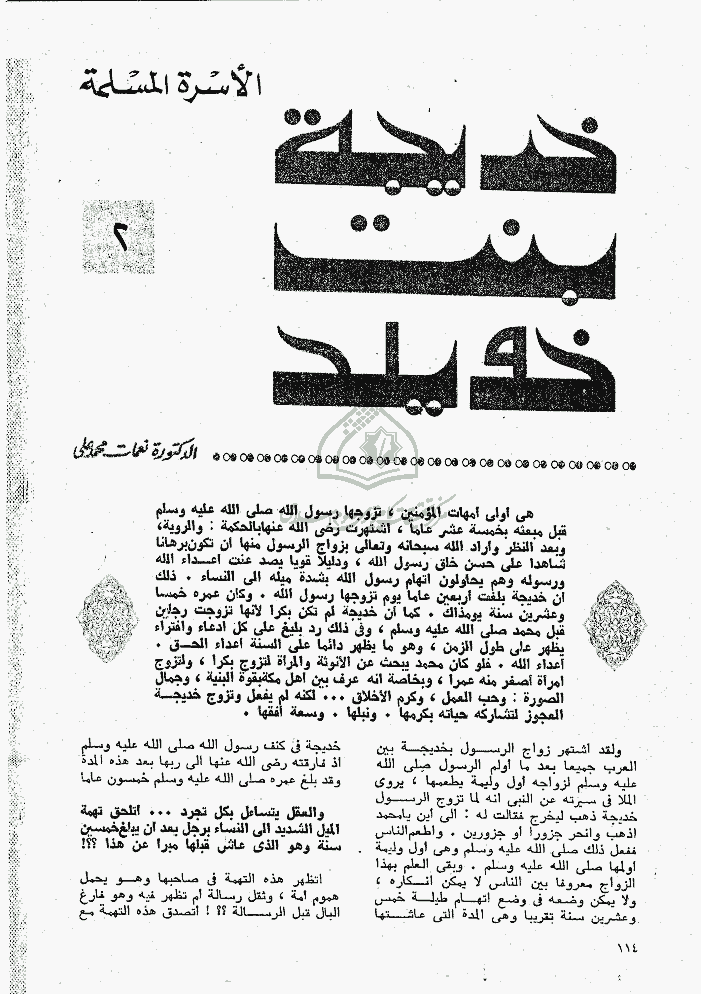 الأسرة المسلمة
خديجة
بنت
خويلد
٢
الدكتورة نعمات محمد على
هى أولى أمهات المؤمنين ، تزوجها رسول الله صلى الله عليه وسلم
قبل مبعثه بخمسة عشر عاما ، اشتهرت رضى الله عنهابالحكمة : والروية،
وبعد النظر وأراد الله سبحانه وتعالى بزواج الرسول منها أن تكون‌برهانا
شاهدا على حسن خلق رسول الله ، ودليلا قويا يصد عنت اعـداء الله
ورسوله وهم يحاولون اتهام رسول الله بشدة ميله الى النساء . ذلك
أن خديجة بلغت أربعين عاما يوم تزوجها رسول الله . وكان عمره خمسا
وعشرين سنة يومذاك . كما أن خديجة لم تكن بكرا لأنها تزوجت رجلين
قبل محمد صلى الله عليه وسلم ، وفى ذلك رد بليغ على كل ادعاء وافتراء
يظهر على طول الزمن ، وهو ما يظهر دائما على السنة أعداء الحـق .
أعداء الله . فلو كان محمد يبحث عن الأنوثة والمرأة لتزوج بكرا ، ولتزوج
امرأة أصغر منه عمرا ، وبخاصة انه عرف بين أهل مكةبقوة البنية ، وجمال
الصورة : وحب العمل ، وكرم الأخلاق ... لكنه لم يفعل وتزوج خديجـة
العجوز لتشاركه حياته بكرمها . ونبلها . وسعة أفقها .
ولقد اشتهر زواج الرسـول بخديجـة بين
العرب جميعا بعد ما أولم الرسول صلى الله
عليه وسلم لزواجه أول وليمة يطعمها ، يروى
الملا فى سيرته عن النبى أنه لما تزوج الرسـول
خديجة ذهب ليخرج فقالت له : الى أين يامحمد
اذهب وانحر جزورا أو جزورين . وأطعم‌الناس
ففعل ذلك صلى الله عليه وسلم وهى أول وليمة
أولمها صلى الله عليه وسلم . وبقى العلم بهذا
الزواج معروفا بين الناس لا يمكن انـكاره ،
ولا يمكن وضعه فى وضع اتهـام طيلـة خمس
وعشرين سنة تقريبا وهى المدة التى عاشـتها
خديجة فى كنف رسول الله صلى الله عليه وسلم
اذ فارقته رضى الله عنها الى ربها بعد هذه المدة
وقد بلغ عمره صلى الله عليه وسلم خمسون عاما
والعقل يتساءل بكل تجرد ... أتلحق تهمة
الميل الشديد الى النساء برجل بعد أن يبلغ‌خمسين
سنة وهو الذى عاش قبلها مبرأ عن هذا ؟؟!
أتظهر هذه التهمة فى صاحبها وهـو يحمل
هموم أمة ، وثقل رسالة أم تظهر فيه وهو فارغ
البال قبل الرسـالة ؟؟ ! أتصدق هذه التهمة مع
١١٤